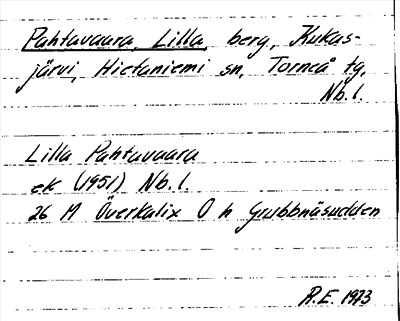 Pahtavaara, Lilla, berg, Kukas-
järvi, Hietaniemi sn, Torneå tg,
Nb.l.
Lilla Pahtavaara
ek (1951) Nb.l.
26 M Överkalix O h Grubbnäsudden
R.E. 1973